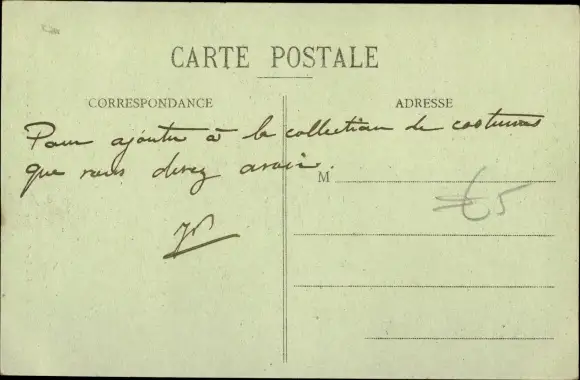 CARTE POSTALE
CORRESPONDANCE
ADRESSE
Pour ajouter à la collection de costumes
que vous devez avoir.
M
€5